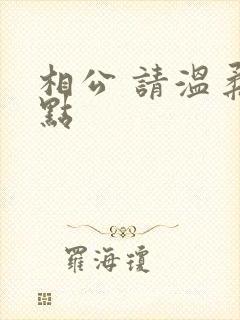 相公 請溫柔
點
羅海瓊